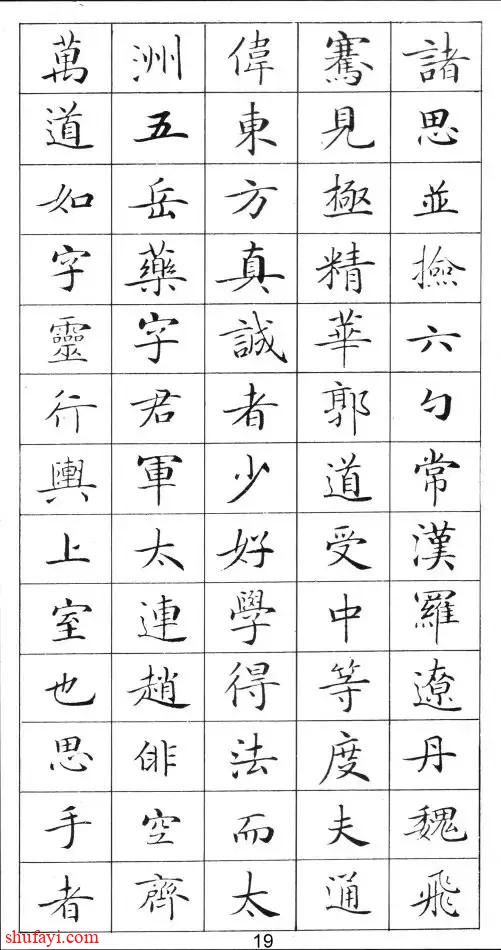 諸思並撿六勺常漢羅遼丹魏飛
騫見極精華郭道受中等度夫通
偉東方真誠者少好學得法而太
洲五岳藥字君軍太連趙俳空齊
萬道如字靈行輿上室也思手者
19
shufayi.com